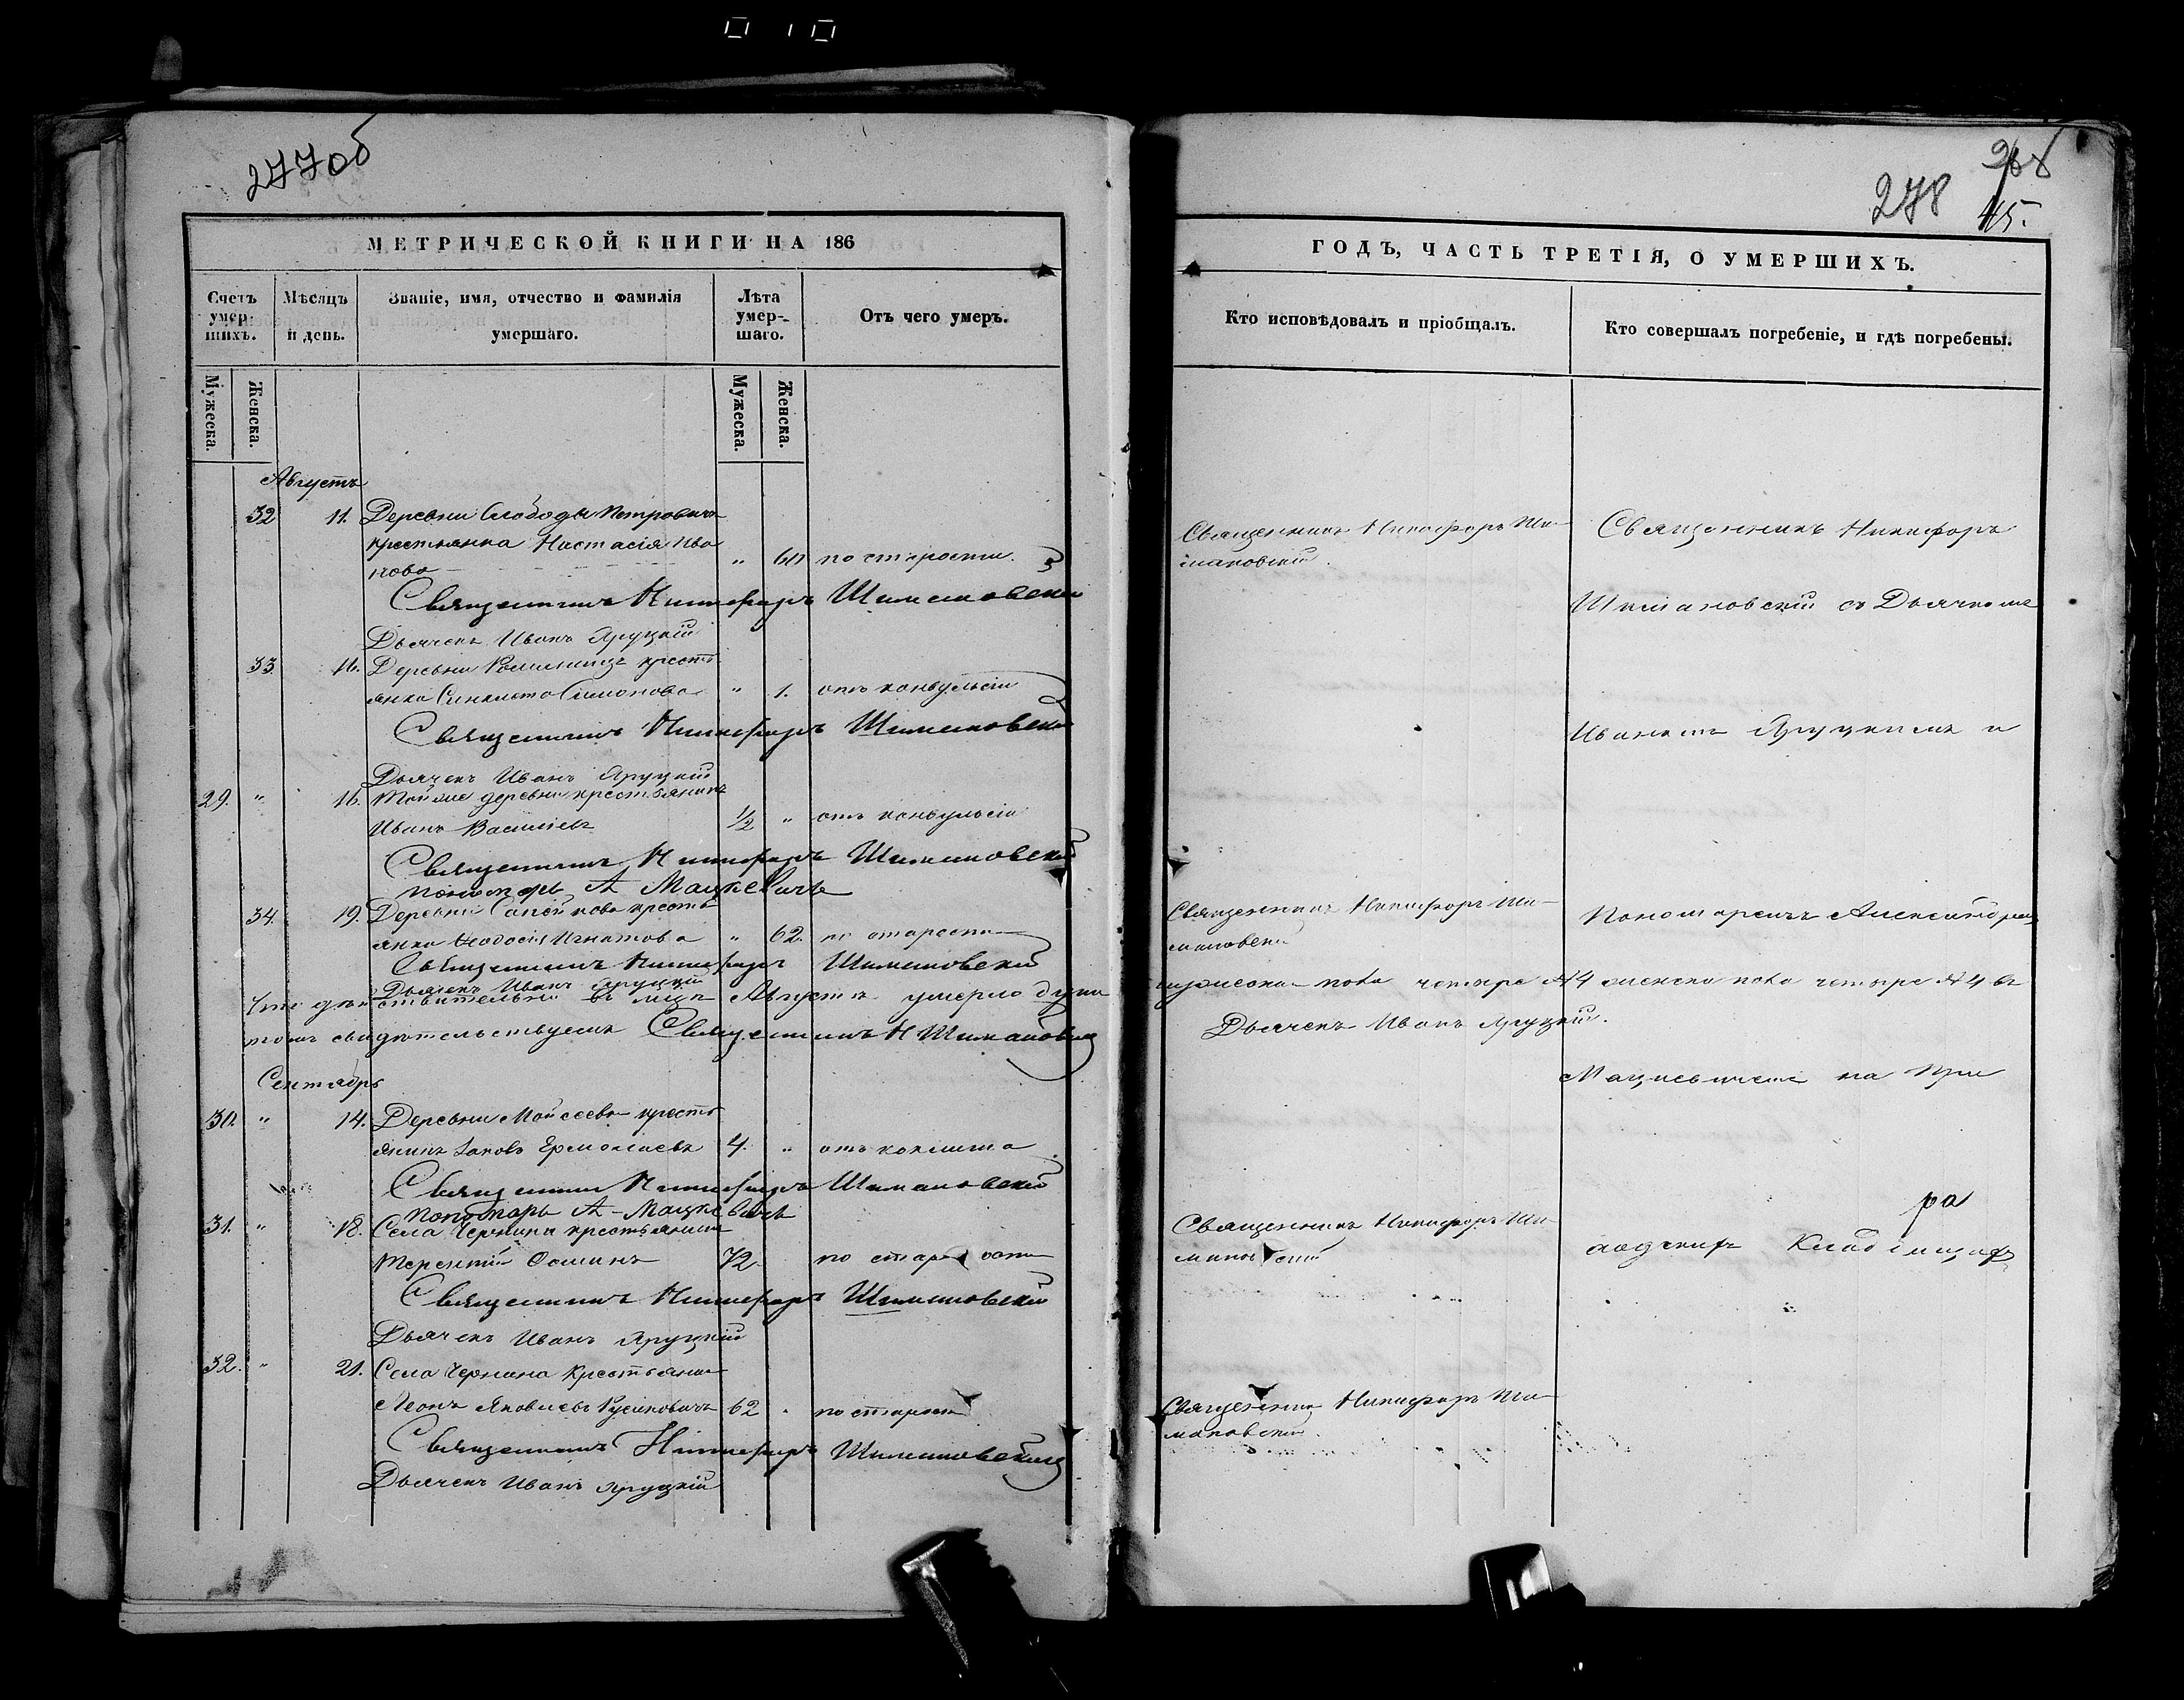 277об
268
278
45.
МЕТРИЧЕСКОЙ КНИГИ НА 186
Счетъ умер-шихъ.
Мѣсяцъ и день.
Званіе, имя, отчество и фамилія умершаго.
Лѣта умер-шаго.
Отъ чего умеръ.
Мужеска.
Женска.
Мужеска.
Женска.
Августъ
32 11. Деревни Слободы Петровичъ
крестьянка Настасія Ива
нова " 60 по старости.
Священникъ Никифоръ Шимановскій
Дьячекъ Иванъ Яруцкій
33. 16. Деревни крестъ
янка Симонова " 1. отъ конвульсіи
Священникъ Никифоръ Шимановскій
Дьячекъ Иванъ Яруцкій
29. " 16. Тойже деревни крестьянинъ
Иванъ Васильевъ 1/2 " отъ конвульсіи
Священникъ Никифоръ Шимановскій
Пономарь А Мацкевичъ
34. 19. Деревни крестъ
янка Ѳеодосія Игнатова " 62. по старости
Священникъ Никифоръ Шимановскій
Дьячекъ Иванъ Яруцкій
Что дѣйствительно въ Августѣ умерло душъ
томъ свидѣтельствуемъ Священникъ Н Шимановскій
Сентябрь
30. " 14. Деревни Мойсеева крестъ
янинъ Іаковъ Ермолаевъ 4. " отъ коклюша
Священникъ Никифоръ Шимановскій
Пономарь А Мацкевичъ
31. " 18. Села Чернина крестьянинъ
Терентій Осминъ 72. по старости
Священникъ Никифоръ Шимановскій
Дьячекъ Иванъ Яруцкій
32. " 21. Села Чернина Крестьянинъ
Леонъ Яковлевъ 62 " по старости
Священникъ Никифоръ Шимановскій
Дьячекъ Иванъ Яруцкій
ГОДЪ, ЧАСТЬ ТРЕТІЯ, О УМЕРШИХЪ.
Кто исповѣдовалъ и пріобщалъ.
Кто совершалъ погребеніе, и гдѣ погребены.
Священникъ Никифоръ Ши-
мановскій.
Священникъ Никифоръ
Шимановскій съ Дьячкомъ
Иваномъ Яруцкимъ и
Священникъ Никифоръ Ши-
мановскій
Пономаремъ Александромъ
мужеска пола четыре №4 женска пола четыре №4 въ
Дьячекъ Иванъ Яруцкій.
Мацкевичемъ на При
Священникъ Никифоръ Ши-
мановскій
ра
Кладбищахъ
Священникъ Никифоръ Ши-
мановскій.